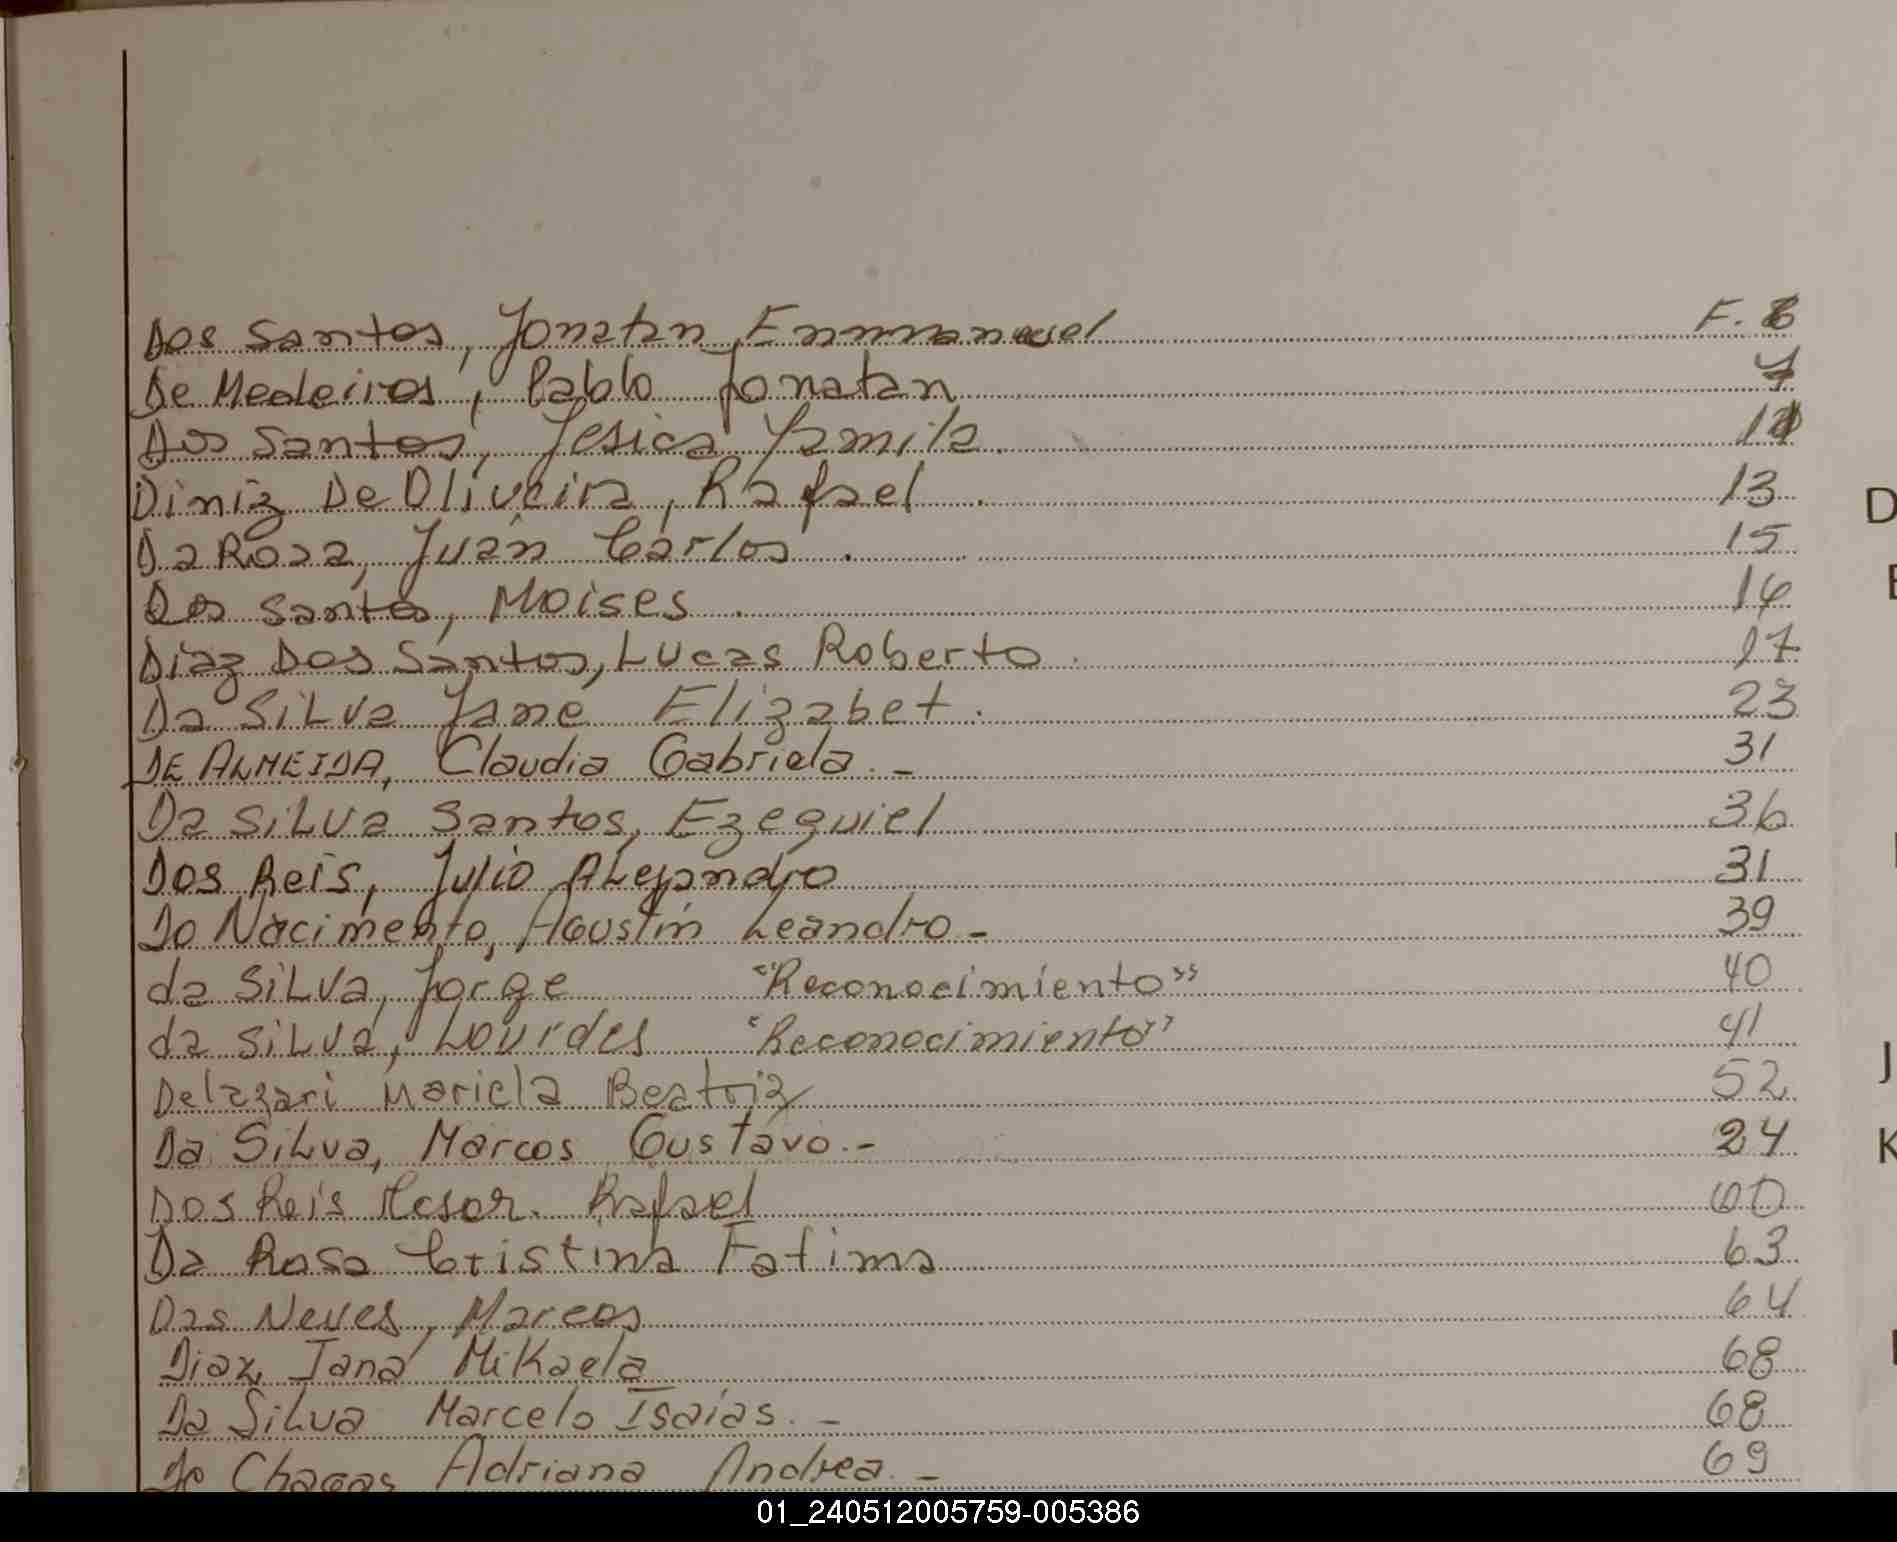 Dos Santos, Jonatan Emmanuel F. 6
De Medeiros, Pablo Jonatan 7
Dos Santos, Jesica Yamila 11
Diniz De Oliveira, Rafael . 13
Da Rosa, Juan Carlos . 15
Dos Santos, Moises . 16
Diaz Dos Santos, Lucas Roberto . 17
Da SiLva Jane Elizabet . 23
DE ALMEIDA, Claudia Gabriela . - 31
Da SiLva Santos, Ezequiel 36
Dos Reis, Julio ALejandro 31
Do Nacimento, Agustin Leandro - 39
da SiLva, Jorge "Reconocimiento" 40
da SiLva, Lourdes "Reconocimiento" 41
Delazari Mariela Beatriz 52
Da SiLva, Marcos Gustavo . - 24
Dos Reis Rafael 60
Da Rosa Cristina Fatima 63
Das Neves, Marcos 64
Diaz Jana Mikaela 68
Da SiLva Marcelo Isaías . - 68
De Chagas Adriana Andrea - 69
D
E
J
K
01_240512005759-005386